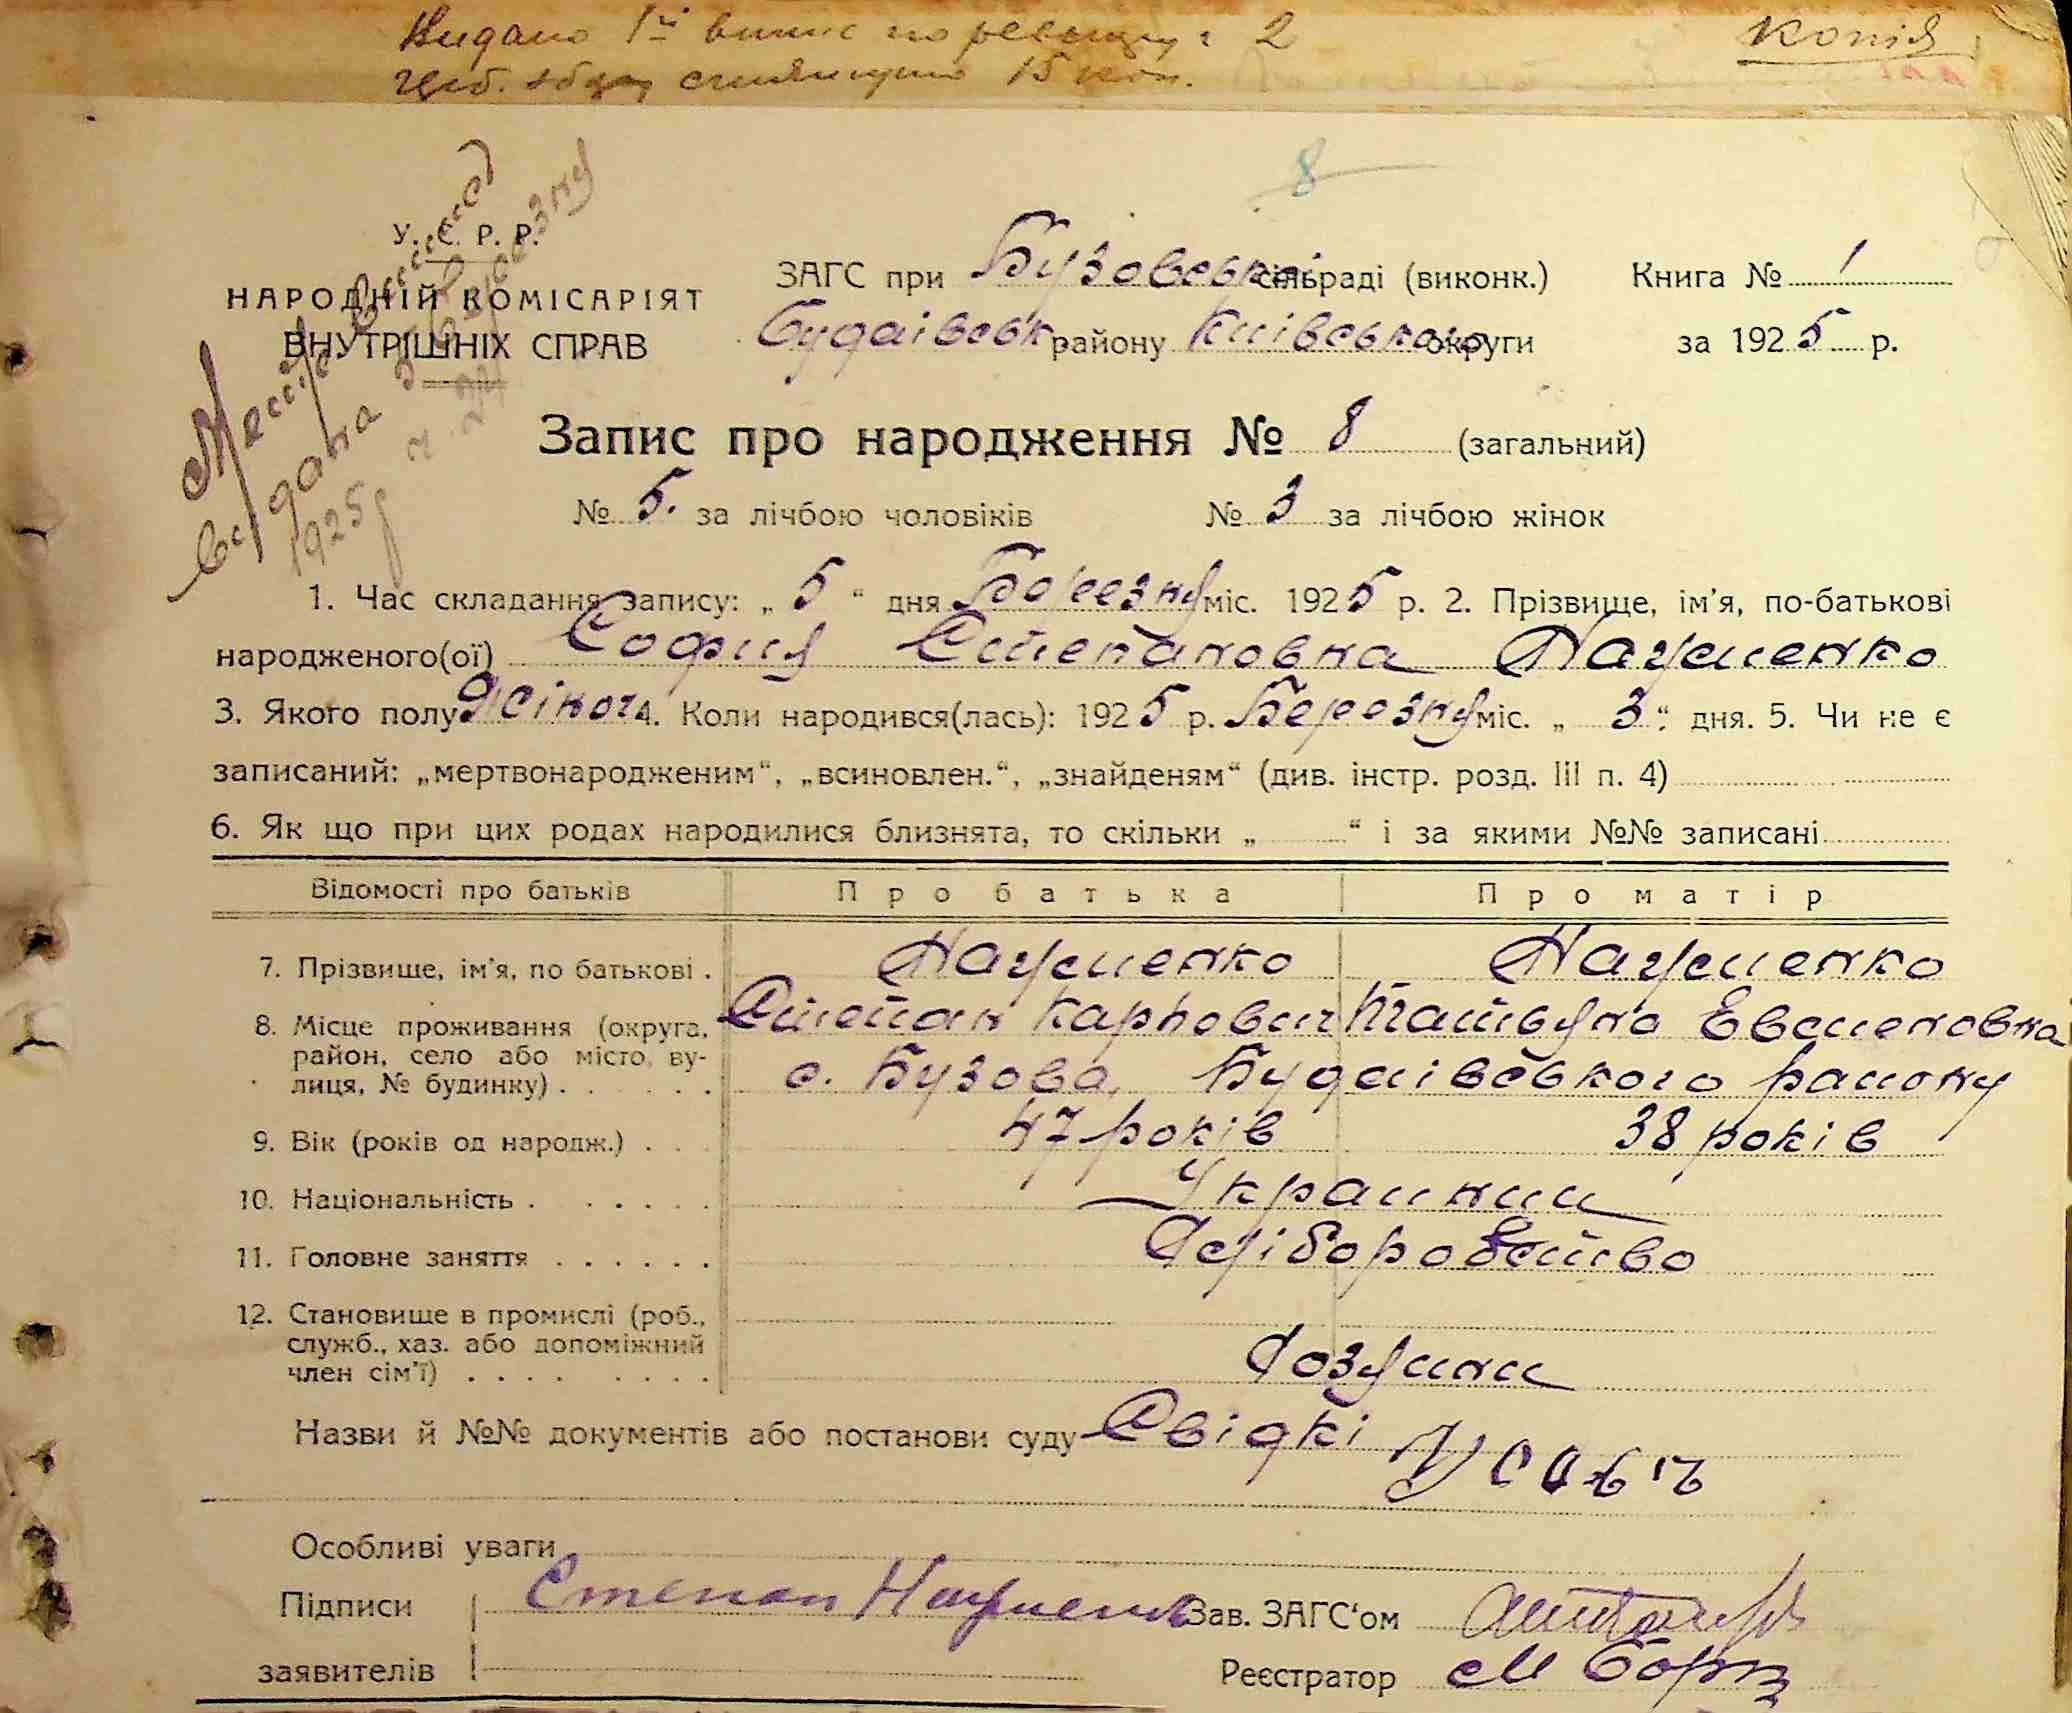 Видано 1й випис по реєстру № 2
Копія
збору стягнуто 15 коп.
8
У. С. Р. Р.
НАРОДНІЙ КОМІСАРІЯТ
ВНУТРІШНІХ СПРАВ
видана 5 березня
1925 р
ЗАГС при Бузовській сільраді (виконк.) Книга № 1
Будаівськ району Київського округи за 1925 р.
Запис про народження № 8 (загальний)
№ 5. за лічбою чоловіків № 3 за лічбою жінок
1. Час складання запису: „ 5 “ дня Березня міс. 1925 р. 2. Прізвище, ім'я, по-батькові
народженого(ої) София Степановна Науменко
3. Якого полу Жіноч 4. Коли народився(лась): 1925 р. Березня міс. „ 3 “ дня. 5. Чи не є
записаний: „мертвонародженим“, „всиновлен.“, „знайденям“ (див. інстр. розд. III п. 4)
6. Як що при цих родах народилися близнята, то скільки „ “ і за якими №№ записані
Відомості про батьків Про батька Про матір
7. Прізвише, ім'я, по батькові . Науменко Науменко
Степан Карпович Татьяна Евсеповна
8. Місце проживання (округа, район, село або місто, вулиця, № будинку) . с. Бузова, Будаівського району
9. Вік (років од народж.) . 47 років 38 років
10. Національність . Украинци
11. Головне заняття . Хліборобство
12. Становище в промислі (роб., служб., хаз. або допоміжний член сім'ї) . Хозяини
Назви й №№ документів або постанови суду Свідкі
Особливі уваги
Підписи Степан Науменко Зав. ЗАГС‘ом
заявителів Реєстратор